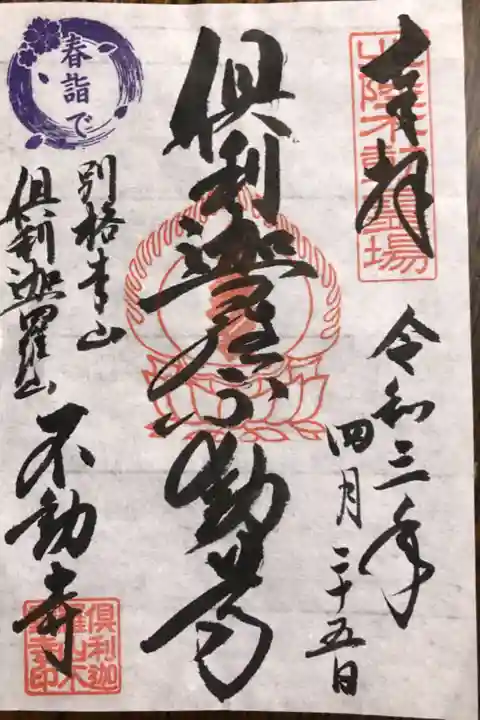 奉拝
山陰不動霊場
令和三年
四月二十五日
倶利迦羅不動尊
春詣で
別格本山
倶利迦羅山
不動寺
倶利迦
羅山不
動寺印